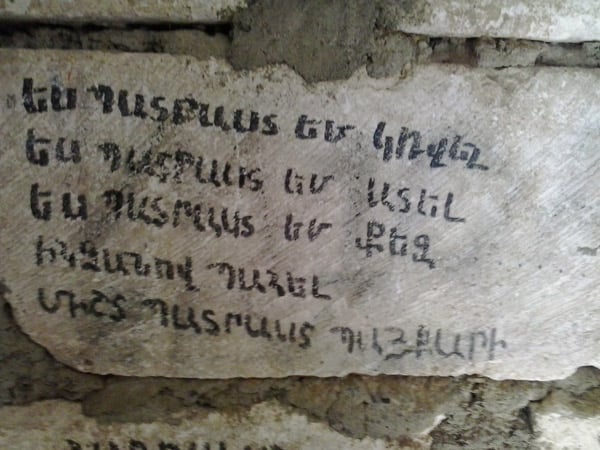 ԵՍ ՊԱՏՐԱՍՏ ԵՄ ԿՌՎԵԼ
ԵՍ ՊԱՏՐԱՍՏ ԵՄ ԱՏԵԼ
ԵՍ ՊԱՏՐԱՍՏ ԵՄ ՔԵԶ
ԻՆՁԱՆՈՎ ՊԱՀԵԼ
ՄԻՇՏ ՊԱՏՐԱՍՏ ՊԱՅՔԱՐԻ